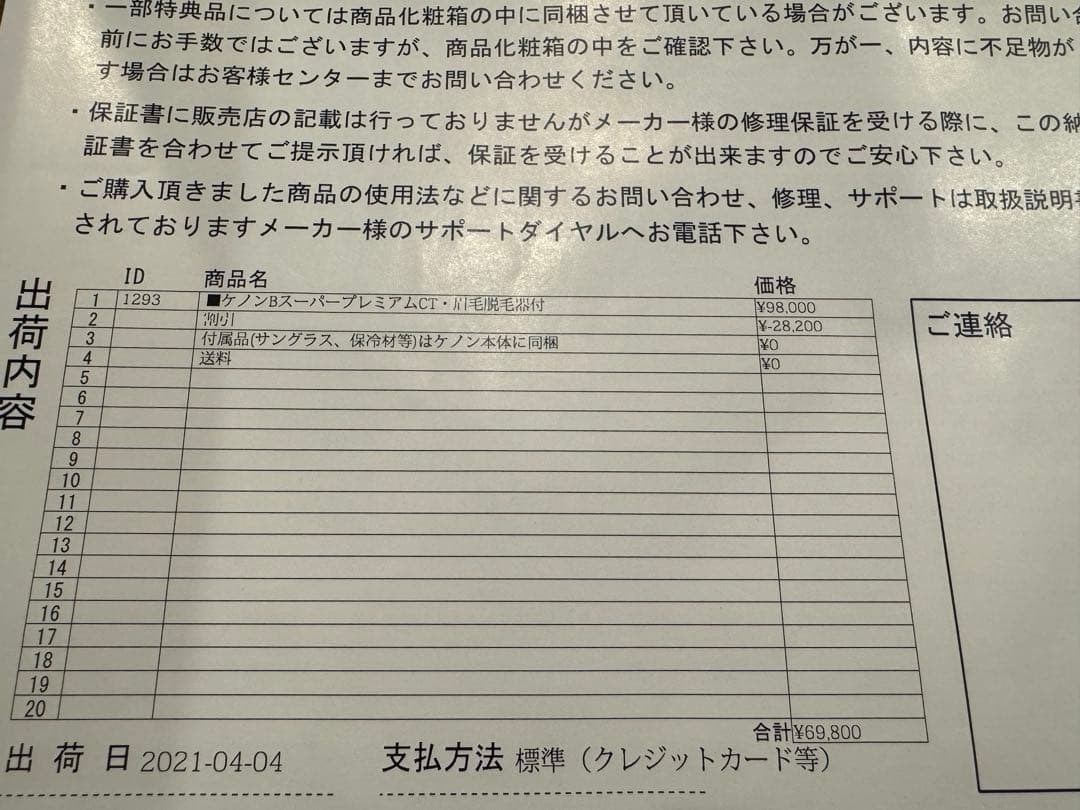 ・一部特典品については商品化粧箱の中に同梱させて頂いている場合がございます。お問い合
前にお手数ではございますが、商品化粧箱の中をご確認下さい。万が一、内容に不足物が
す場合はお客様センターまでお問い合わせください。
・保証書に販売店の記載は行っておりませんがメーカー様の修理保証を受ける際に、この納
証書を合わせてご提示頂ければ、保証を受けることが出来ますのでご安心下さい。
・ご購入頂きました商品の使用法などに関するお問い合わせ、修理、サポートは取扱説明書
されておりますメーカー様のサポートダイヤルへお電話下さい。
出荷内容
ID 商品名 価格
1 1293 ■ケノンBスーパープレミアムCT・眉毛脱毛器付 ¥98,000
2 割引 ¥-28,200
3 付属品(サングラス、保冷材等)はケノン本体に同梱 ¥0
4 送料 ¥0
5
6
7
8
9
10
11
12
13
14
15
16
17
18
19
20
合計 ¥69,800
ご連絡
出荷日 2021-04-04 支払方法 標準（クレジットカード等）